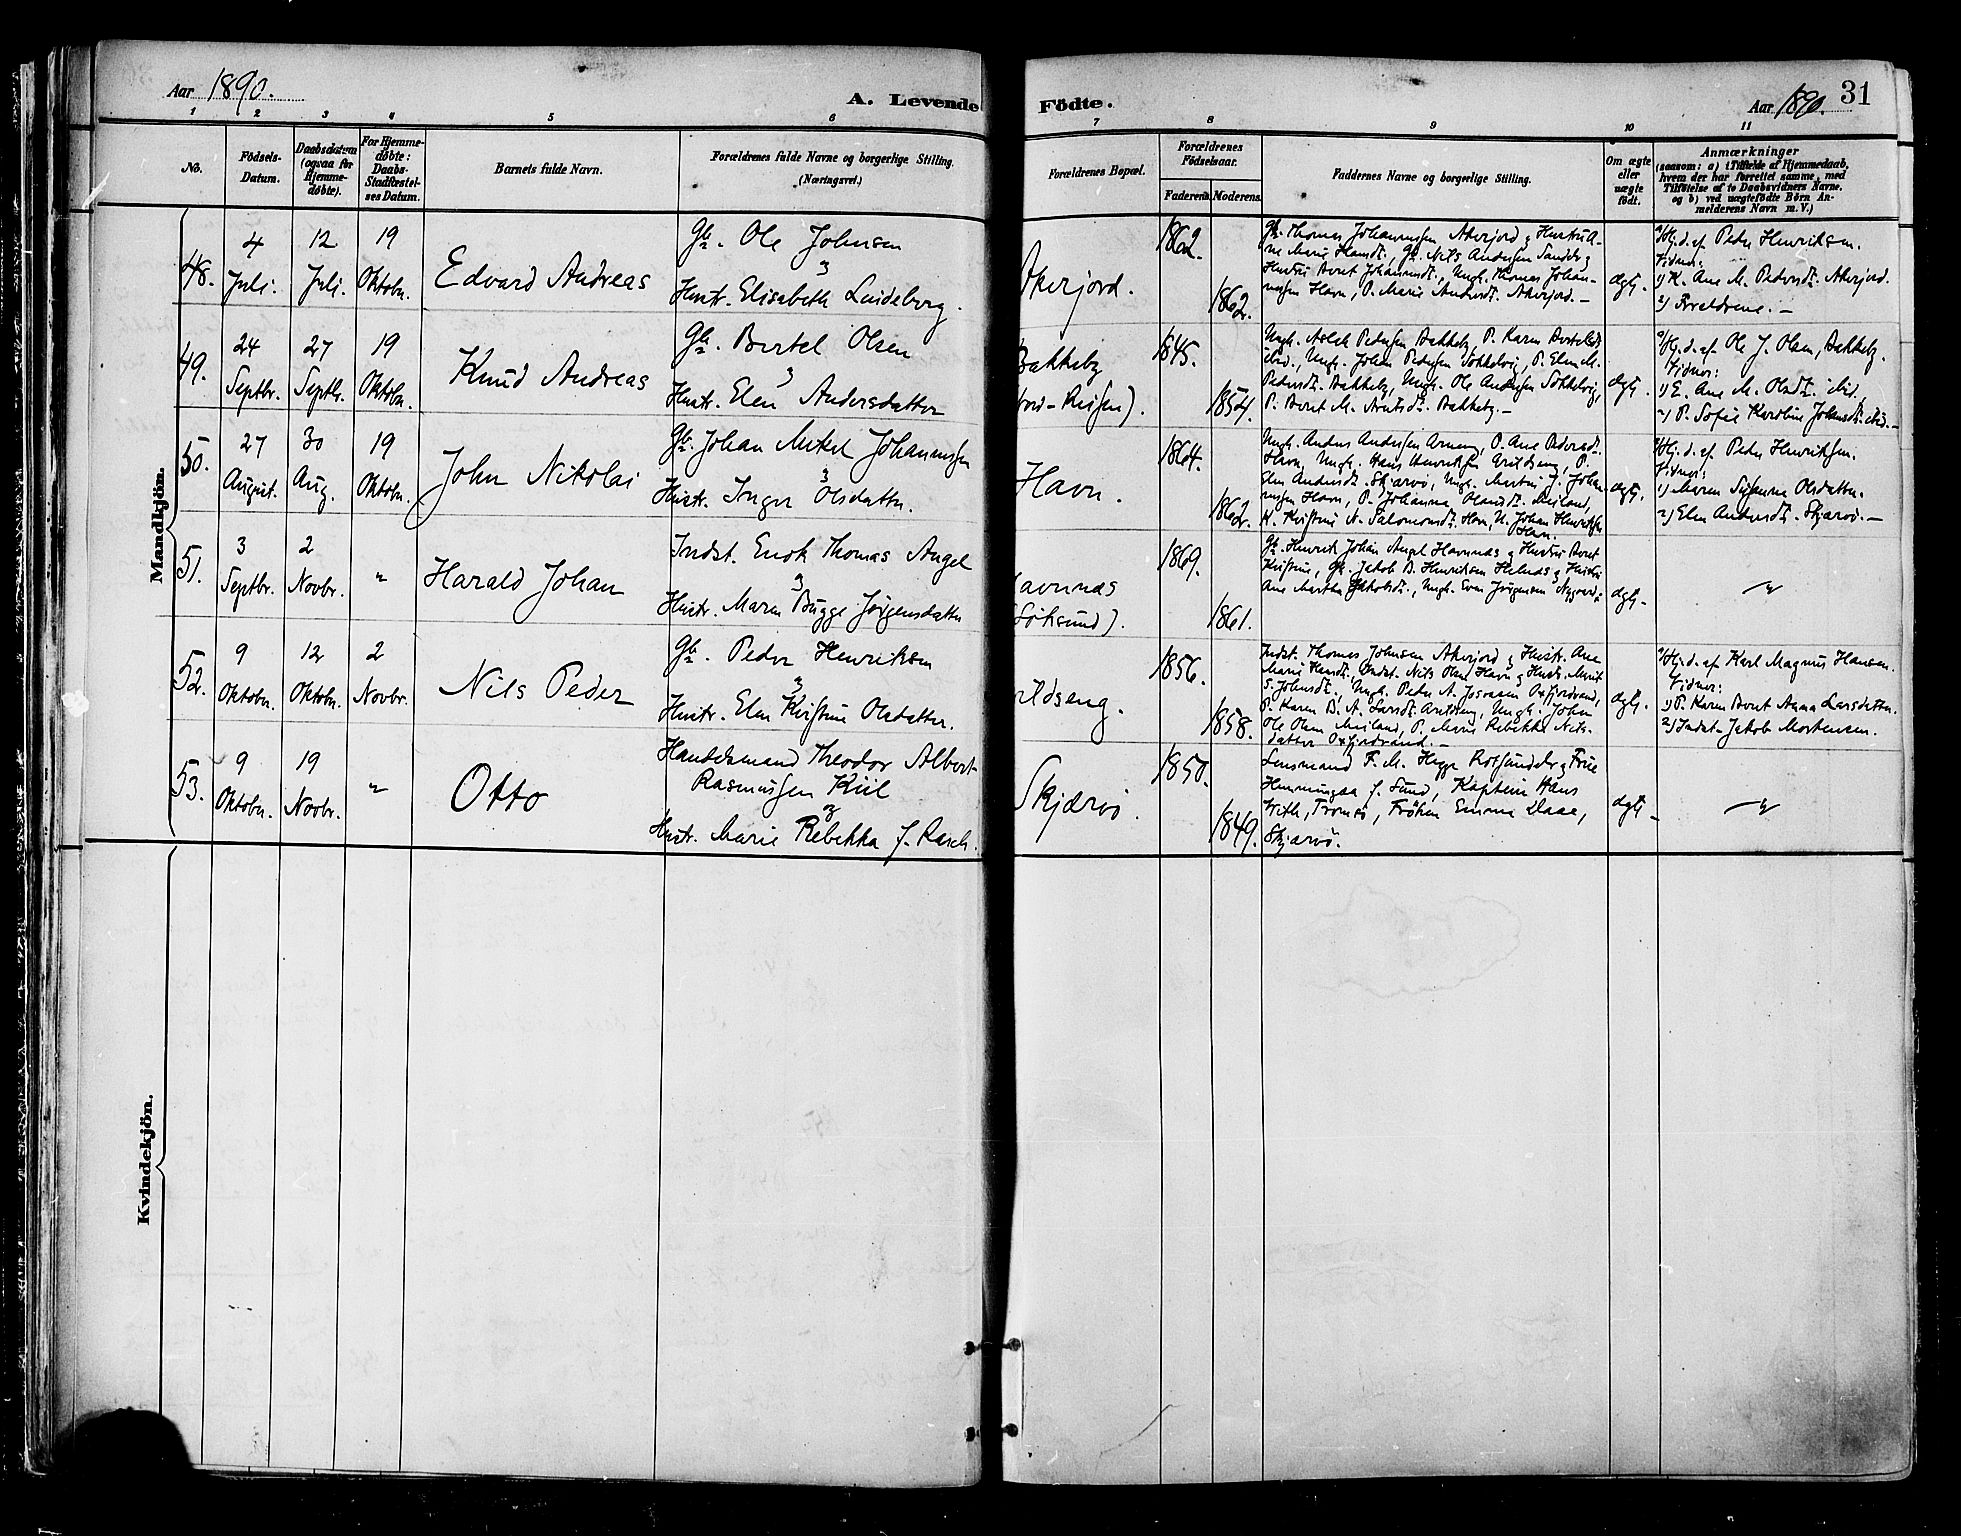 Aar 1890.
A. Levende Födte.
Aar 1890. 31
1 2 3 4 5 6 7 8 9 10 11
No.
Födsels-
Datum.
Daabsdatum
(ogsaa for
Hjemme-
döbte).
For Hjemme-
döbte:
Daabs-
Stadfæstel-
ses Datum.
Barnets fulde Navn.
Forældrenes fulde Navne og borgerlige Stilling.
(Næringsvei.)
Forældrenes Bopæl.
Forældrenes
Födselsaar.
Faderens. Moderens.
Faddernes Navne og borgerlige Stilling.
Om ægte
eller
uægte
födt.
Anmærkninger
(saasom: a) i Tilfælde af Hjemmedaab,
hvem der har forrettet samme, med
Tilföielse af to Daabsvidners Navne,
og b) ved uægtefödte Börn An-
melderens Navn m. V.)
Mandkjön.
48.
4
Juli.
12
Juli.
19
Oktobr.
Edvard Andreas
Gbr. Ole Johnsen
og
Hustr. Elisabeth Lindeborg.
Akerjord.
1862.
1862.
Gbr. Thomas Johannessen Akerjord og Hustru A-
ne Marie Hansdt., Gbr. Nils Andersen Sandby
Hustru Beret Johannesdt., Ungk. Thomas Johan-
nesen Havn, P. Marie Andersdt. Akerjord. –
ægte.
a/ Hj.d. af Peder Henriksen.
Vidner:
1) K. Ane M. Pedersdt. Akerjord.
2) Forældrene. –
49.
24
Septbr.
27
Septbr.
19
Oktobr.
Knud Andreas
Gbr. Bertel Olsen
og
Hustr. Elen Andersdatter
Bakkeby
(Nord-Reisen).
1845.
1854.
Ungk. Aslak Pedersen Bakkeby, P. Karen Bertelsdt.
ibid., Ungk. Johan Pedersen Sökkelvig, P. Elen M.
Pedersdt. Bakkeby, Ungk. Ole Andersen Sökkelvig,
P. Beret M. Bakkeby. –
ægte.
a/ Hj.d. af Ole J. Olsen, Bakkeby.
Vidner:
1) E. Ane M. Olsdt. ibid.,
2) P. Sofie Karoline Johnsdt. ibid. –
50.
27
August.
30
Aug.
19
Oktobr.
John Nikolai
Gbr. Johan Mikal Johannessen
og
Hustr. Inger Olsdatter.
Havn.
1864.
1862.
Ungk. Anders Andersen P. Ane Pedersdt.
Havn, Ungk. Hans Henriksen Arildseng, P.
Elen Andersdt. Skjærvö, Ungk. Martin J. Johan-
nesen Havn, P. Johanna Olausdt. Meiland,
K. Kristine N. Salomonsdt. Havn, U. Johan Henriksen
Havn.
ægte.
a/ Hj.d. af Peder Henriksen.
Vidner:
1) Maren Susanne Olsdatter.
2) Elen Andersdt. Skjærvö. –
51.
3
Septbr.
2
Novbr.
"
Harald Johan
Indst. Enok Thomas Angel
og
Hustr. Maren Bugge Jörgensdatter
Havnnæs
1869.
1861.
Gbr. Henrik Johan Angel Havnnæs og Hustru Beret
Kristine, Gbr. Jakob B. Henriksen Helnæs og Hustru
Ane Martha Jakobsdt., Ungk. Even Jörgensen Nygaard.
ægte.
"
52.
9
Oktobr.
12
Oktobr.
2
Novbr.
Nils Peder
Gbr. Peder Henriksen
og
Hustr. Elen Kristine Olsdatter.
Arildseng.
1856.
1858.
Indst. Thomas Johnsen Akerjord og Hustr. Ane
Marie Hansdt., Indst. Nils Olsen Havn og Hustr. Marit
S. Johnsdt., Ungk. Peder A. Josvasen Oxfjordvand,
P. Karen B. A. Larsdt. Arildseng, Ungk. Johan
Ole Olsen Meiland, P. Marie Rebekka Nils-
datter Oxfjordvand. –
ægte.
a/ Hj.d. af Karl Magnus Hansen.
Vidner:
1) P. Karen Beret Anna Larsdatter.
2) Indst. Jakob Mortensen.
53.
9
Oktobr.
19
Novbr.
"
Otto
Handelsmand Theodor Albert
Rasmussen Kiil
og
Hustr. Marie Rebekka f. Rasch.
Skjærvö.
1850.
1849.
Lensmand F. M. Hegge Rotsundelv og Frue
Henningaa f. Sund, Kaptein Hans
With, Tromsö, Fröken Emma Daae,
Skjærvö.
ægte
"
Kvindekjön.